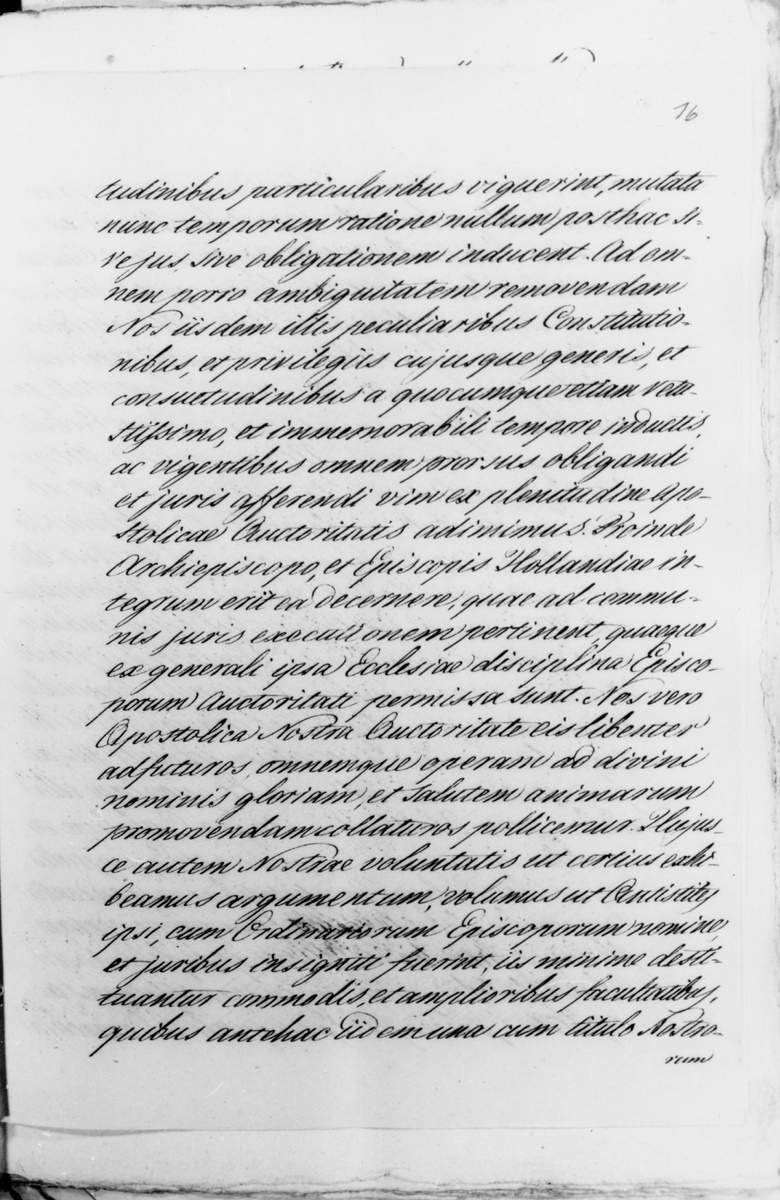 16
tudinibus particularibus viguerint, mutata
nunc temporum ratione nullum posthac si-
ve jus, sive obligationem inducent. Ad om-
nem porro ambiguitatem removendam
Nos iisdem illis peculiaribus Constitutio-
nibus, et privilegiis cujusque generis, et
consuetudinibus a quocumque etiam vetu-
stissimo, et immemorabili tempore inductis,
ac vigentibus omnem prorsus obligandi
et juris afferendi vim ex plenitudine Apo-
stolicae Auctoritatis adimimus. Proinde
Archiepiscopo, et Episcopis Hollandiae in-
tegrum erit ea decernere, quae ad commu-
nis juris executionem pertinent, quaeque
ex generali ipsa Ecclesiae disciplina Episco-
porum Auctoritati permissa sunt. Nos vero
Apostolica Nostra Auctoritate eis libenter
adfuturos, omnemque operam ad divini
nominis gloriam, et salutem animarum
promovendam collaturos pollicemur. Hujus-
ce autem Nostrae voluntatis ut certius exhi-
beamus argumentum, volumus ut Antistites
ipsi, cum Ordinariorum Episcoporum nomine,
et juribus insigniti fuerint, iis minime desti-
tuantur commodis, et amplioribus facultatibus,
quibus antehac iidem una cum titulo Nostro-
rum